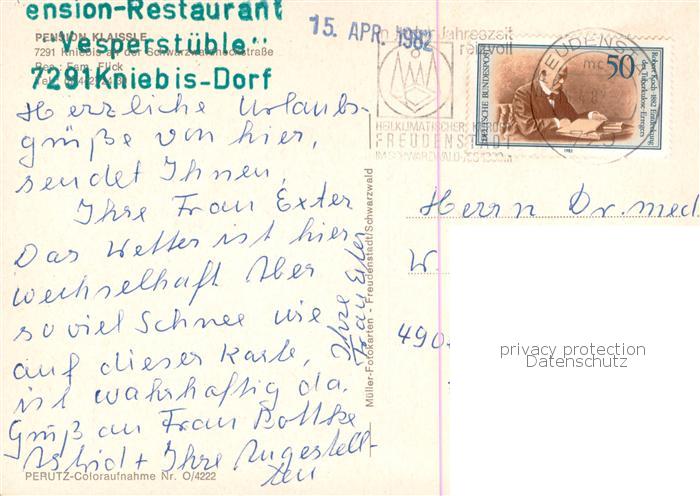 ension-Restaurant
"Vesperstüble"
7291 Kniebis-Dorf
PENSION KLAISSLE
7291 Kniebis an der Schwarzwaldhochstraße
Bes.: Fam. Flick
15. APR. 1982
Jahreszeit
reizvoll
HEILKLIMATISCHER KURORT
FREUDENSTADT
IM SCHWARZWALD
EUDENST
50
DEUTSCHE BUNDESPOST
Robert Koch · 1882 Entdeckung
des Tuberkulose-Erregers
1982
Herzliche Urlaubs-
grüße von hier,
sendet Ihnen,
Ihre Frau Exter
Das Wetter ist hier
wechselhaft Aber
soviel Schnee wie
auf dieser Karte,
ist wahrhaftig da.
Gruß an Frau Bottke
Astrid + Ihre Angestell-
ten
Ihre
Frau Exter
Müller-Fotokarten - Freudenstadt/Schwarzwald
PERUTZ-Coloraufnahme Nr. O/4222
Herrn Dr. med.
W.
490
privacy protection
Datenschutz